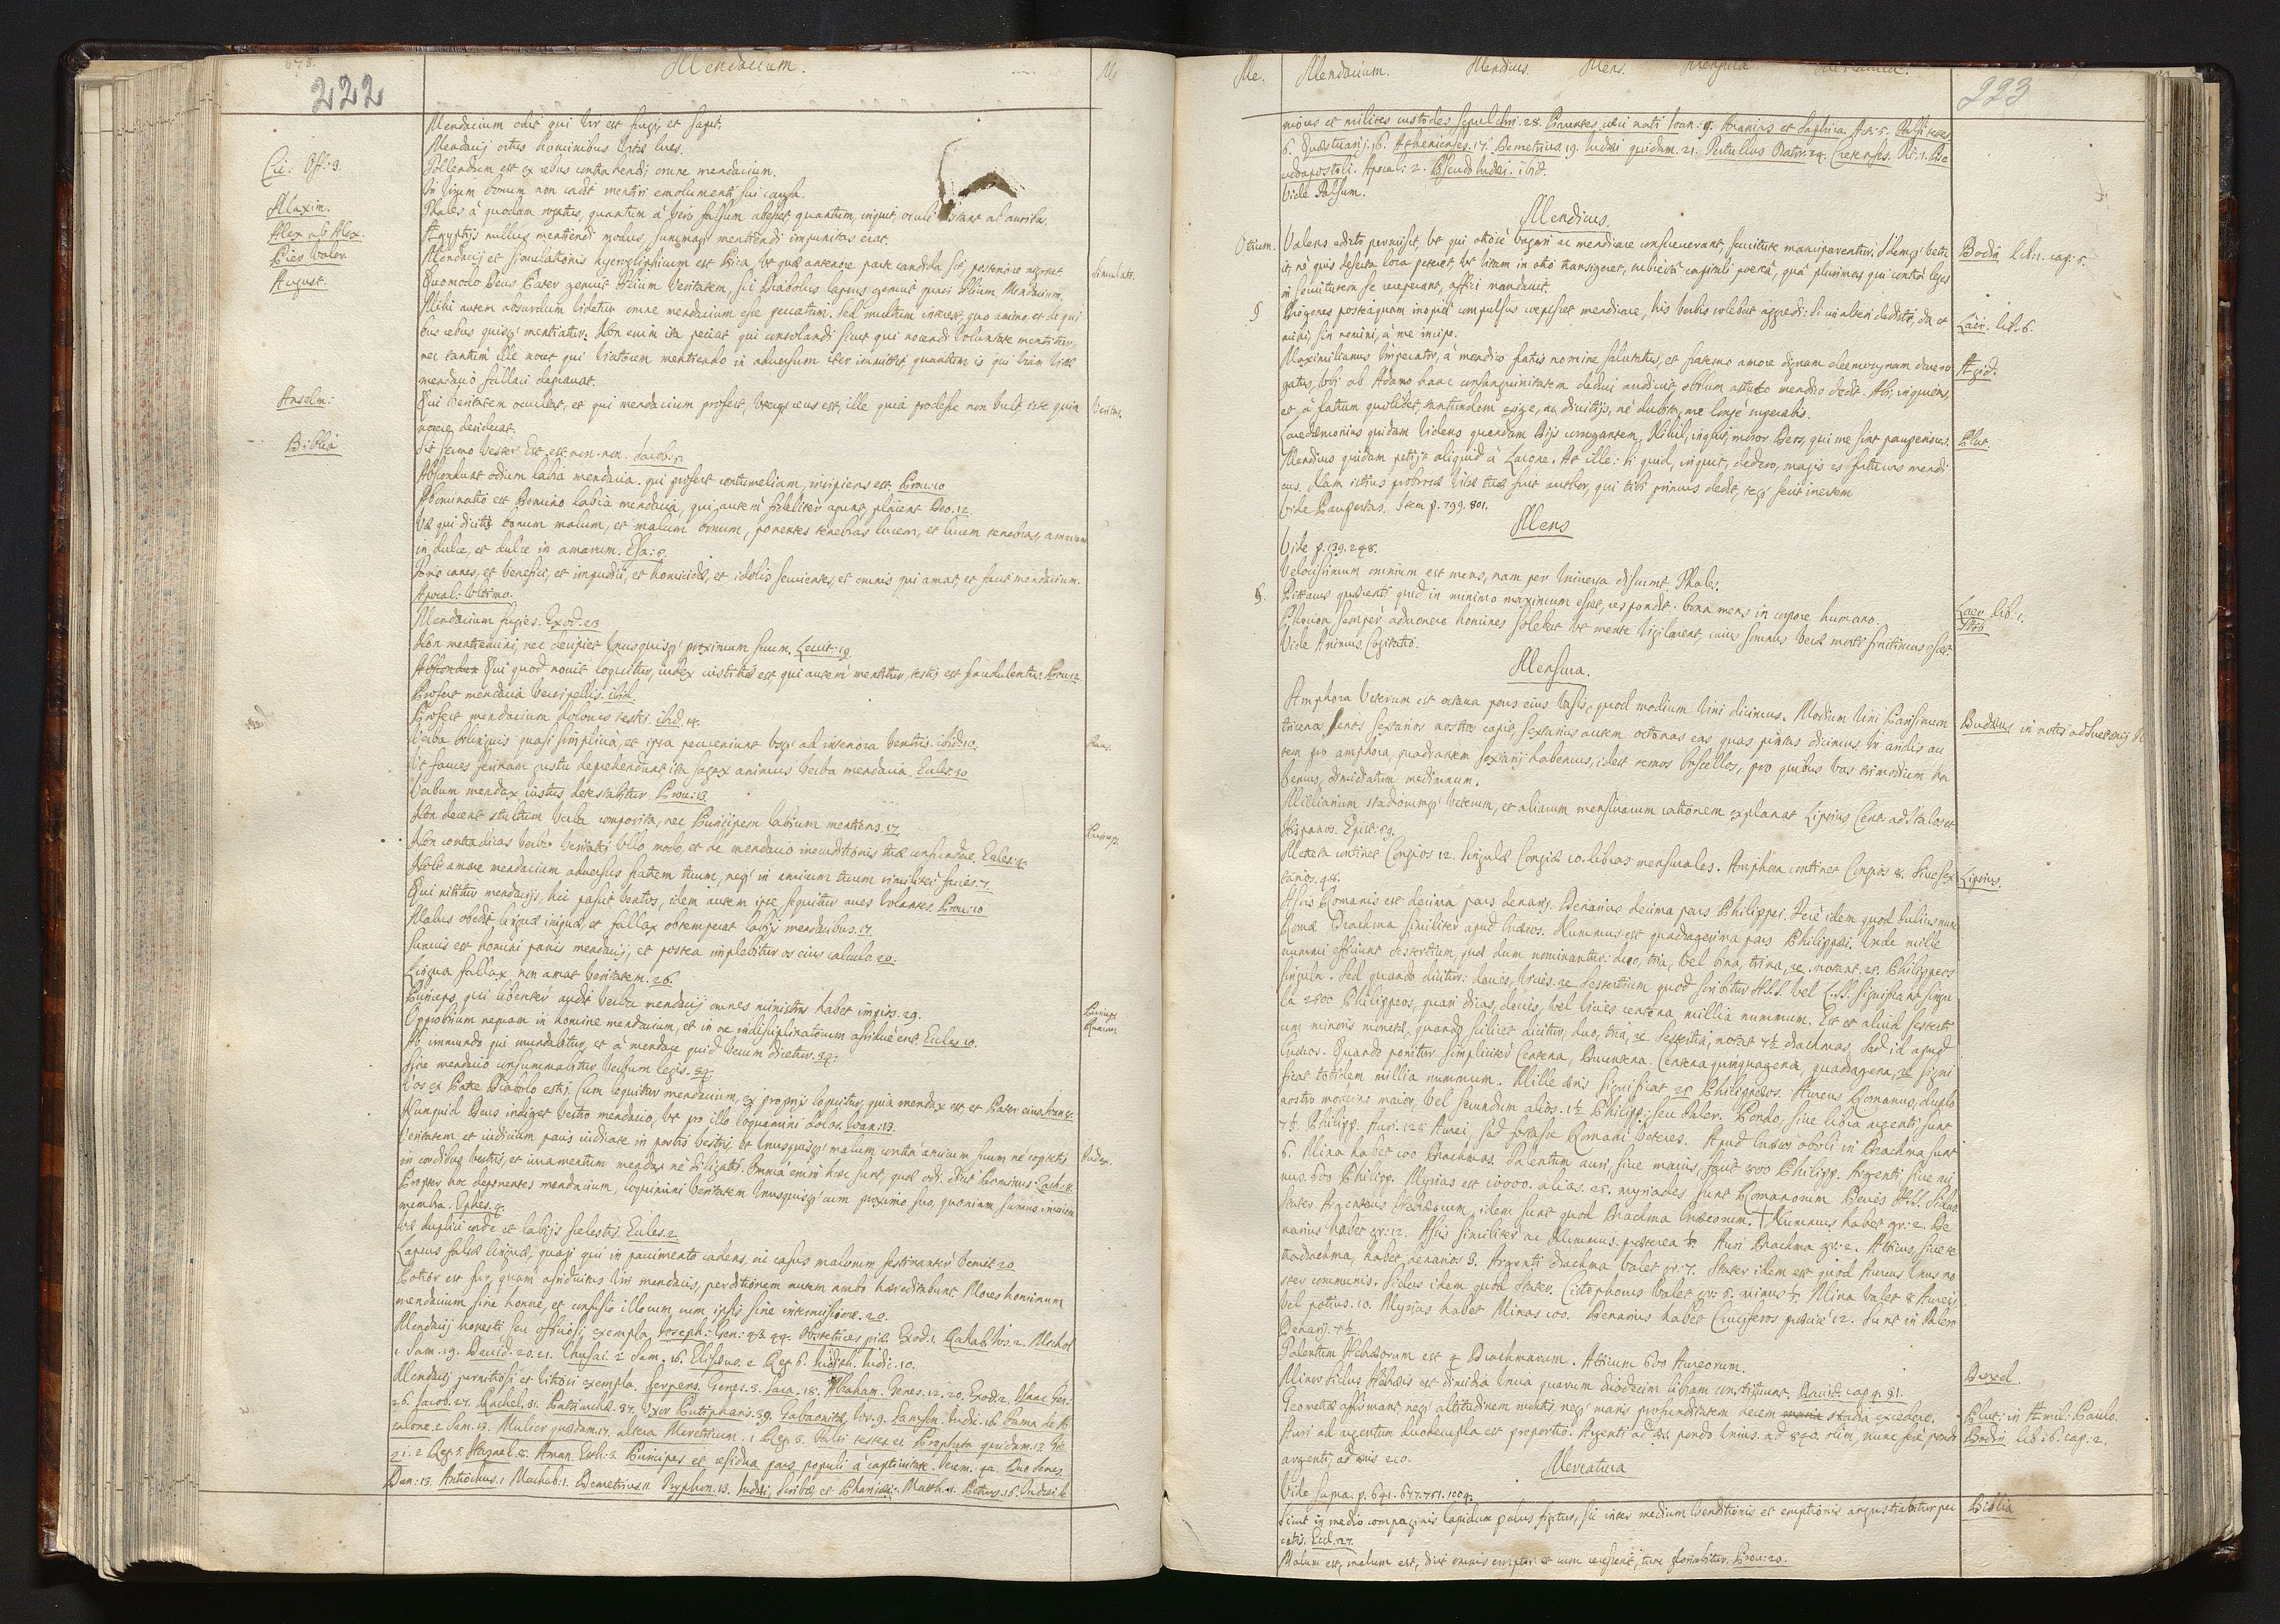 678.
222
Mendacium.
Mendacium odit qui vir est frugi et sapit.
Mendacij actus hominibus
Cic: Off: 3. Tollendum est ex rebus contrahendis omne mendacium.
In virum bonum non cadit mentiri emolumenti sui causa.
Maxim. Thales à quodam rogatus, quantum à vero falsum abesset quantum, inquit, oculi distant ab auribus.
Alex ab Alex. Ægyptijs nullus mentiendi modus, summaq mentiendi impunitas erat.
Pier Valer. Mendacij et simulationis hyeroglyphicum est Pica, ut quæ anteriore parte candida sit, posteriore nigret. Simulatio.
August. Quomodo Deus Pater genuit Filium Veritatem, sic Diabolus lapsus genuit quasi filium Mendacium.
Mihi autem absurdum videtur omne mendacium esse peccatum. Sed multum interest, quo animo, et de qui
bus rebus quisq mentiatur. Non enim ita peccat qui consolandi sicut qui nocendi voluntate mentitur,
nec tantum ille nocet qui viatorem mentiendo in adversum iter immittit, quantum is qui viam vitæ
mendacio fallaci depravat.
Anselm: Qui veritatem occultat, et qui mendacium profert, uterq reus est, ille quia prodesse non vult, iste quia Veritas.
nocere desiderat.
Biblia Sit sermo vester Est, est, non, non. Iacob: 5.
Abscondunt odium labia mendacia. qui profert contumeliam, insipiens est Prov: 10
Abominatio est Domino labia mendacia, qui autem fideliter agunt, placent Deo. 12.
Væ qui dicitis bonum malum, et malum bonum, ponentes tenebras lucem, et lucem tenebras, amarum
in dulce, et dulce in amarum. Esa: 5.
Foris canes, et venefici, et impudici, et homicidæ, et idolis servientes, et omnis qui amat, et facit mendacium.
Apocal: ultimo.
Mendacium fugies. Exod: 23
Non mentiemini, nec decipiet unusquisq proximum suum. Levit: 19.
Qui quod novit loquitur, index iustitiæ est qui autem mentitur, testis est fraudulentus. Prov: 12
Profert mendacia versipellis. ibid.
Profert mendacium dolosus testis. ibid. 14.
Verba bilinguis quasi simplicia, et ipsa perveniunt usq ad interiora ventris. ibid: 10.
Ut fauces ferinam gustu deprehendunt ita sagax animus verba mendacia. Eccles: 30
Verbum mendax iustus detestabitur Prov: 13.
Non decent stultum verba composita, nec Principem labium mentiens. 17. Princeps.
Non contradicas verbo veritatis ullo modo, et de mendacio ineruditionis tuæ confundere. Eccles: 4.
Noli amare mendacium adversus fratrem tuum, neq in amicum tuum similiter facies. 7.
Qui nititur mendacijs, hic pascit ventos, idem autem ipse sequitur aves volantes. Prov: 10
Malus obedit linguæ iniquæ, et fallax obtemperat labijs mendacibus. 17.
Suavis est homini panis mendacij, et postea implebitur os eius calculo 20.
Lingua fallax non amat veritatem. 26.
Princeps, qui libenter audit verba mendacij omnes ministros habet impios. 29. Princeps
Opprobrium nequam in homine mendacium, et in ore indisciplinatorum assidue erit. Eccles 20.
Ab immundo qui mundabitur, et à mendace quid verum dicetur. 34.
Sine mendacio consummabitur verbum legis. 34.
Vos ex Patre Diabolo estis. Cum loquitur mendacium, ex proprijs loquitur, quia mendax est et Pater eius. Ioan: 8.
Nunquid Deus indiget vestro mendacio, ut pro illo loquamini dolos. 13.
Veritatem et iudicium pacis iudicate in portis vestris et unusquisq malum contra amicum suum ne cogitetis Iudex.
in cordibus vestris, et iuramentum mendax ne diligatis. Omnia enim hæc sunt, quæ odi. dicit Dominus. Zach: 8.
Propter hoc deponentes mendacium, loquimini veritatem unusquisq cum proximo suo, quoniam sumus invicem
membra. Ephes. 4.
Væ duplici corde et labijs scelestis. Eccles. 2.
Lapsus falsæ linguæ, quasi qui in pavimento cadens, sic casus malorum festinanter veniet 20
Potior est fur, quam assiduitas viri mendacis, perditionem autem ambo hæreditabunt. Mores hominum
mendacium sine honore, et confusio illorum cum ipsis sine intermissione. 20.
Mendacij honesti seu officiosi exempla. Ioseph: Gen: 42. 44. Obstetrices piæ. Exod: 1. Rahab. Ios. 2. Michol
1 Sam. 19. David. 20. 21. Chusai. 2 Sam. 16. Elisæus. 2 Reg. 6. Iudith. Iudi: 10.
Mendacij perniciosi et vitiosi exempla. Serpens. Genes. 3. Sara. 18. Abraham. Genes. 12. 20. Isaac Gen:
26. Iacob. 27. Rachel. 31. Patriarchæ. 37. Uxor Putipharis. 39. Gabaonitæ, Ios. 9. Samson. Iudic. 16. Fama de Ab
salone. 2 Sam. 13. Mulier quædam 17. altera Meretricum. 1 Reg. 3. Falsi testes 21. Propheta quidam. 13. Gie
zi. 2 Reg. 5. Hazael. 8. Aman. Esth: 3. Principes et residua pars populi à captivitate. Ierem. 42. Duo senes.
Dan: 13. Antiochus. 1 Machab: 1. Demetrius. 11. Tryphon. 13. Iudæi, Scribæ et Pharisæi. Matth. Petrus. 26.
Me. Mendacium. Mendicus. Mens. Mensura Mercatura.
223
et milites custodes sepulchri. 28. Parentes cæci nati Ioan: 9. Ananias et Saphira. Act: 5. Falsi testes
6. 16. Athenienses. 17. Demetrius. 19. Iudæi quidam. 21. Tertullus Orator. 24. Cretenses. Tit: 1. Pse
udoapostoli. Apocal: 2. Pseudo Iudæi. ibid.
Vide Falsum.
Mendicus.
Otium. Valens edicto permisit, ut qui otiose vagari ac mendicare consueverant, servitute manciparentur. Idemq vetu Bodin lib: 1. cap: 5.
it, ne quis deserta loca peteret, ut vitam in otio transigeret, capitali poena, qua plurimos, qui contra leges
in servitutem se receperant, affici mandavit.
§ Diogenes posteaquam inopia compulsus coepisset mendicare, his verbis solebat aggredi: Si cui alteri dedisti, da et Laer. lib. 6.
mihi, sin nemini, à me incipe.
Maximilianus Imperator, à mendico fratris nomine salutatus, et fraterno amore dignam eleemosynam dare ro Ægid.
gatus, ubi ab Adamo hanc consanguinitatem deduci audivit, obolum astuto mendico dedit. Abi, inquiens,
et à fratrum quolibet, tantundem exige, ac divitijs, ne dubita, me longe superabis.
Lacedæmonius quidam videns quendam Dijs corrogantem, Nihil, inquit, moror Deos, qui me sint pauperiores. Plut.
Mendicus quidam petijt aliquid à Lacone. At ille: si quid, inquit, dedero, magis es futurus mendi
cus. Nam istius probrosæ vitæ tuæ fuit author, qui tibi primus dedit, teq fecit inertem
Vide Paupertas. Item p. 799. 801.
Mens
Vide p. 139. 248.
Velocissimum omnium est mens, nam per universa discurrit Thales.
§. Pittacus quærenti quid in minimo maximum esset, respondit: bona mens in corpore humano. Laer. lib. 1.
semper admonere homines solebat ut mente vigilarent, cuius somnus veræ morti finitimus esset. Stob
Vide Animus, Cogitatio.
Mensura.
Amphora Veterum est octava pars eius vasis, quod modium vini dicimus. Modium vini Parisinum Budæus in notis ad
tricenos senos sextarios nostros capit, sextarius autem octonas eas quas pintas dicimus. In aridis au
tem pro amphora, quadrantem sextarij habemus, idest ternos boscellos, pro quibus vas trimodium ha
bemus, dimidiatum medimnum.
Milliarium stadiorumq veterum, et aliarum mensurarum rationem explanat Lipsius Cent ad Italos et
Hispanos. Epist: 59.
Metreta continet Congios 12. singuli Congij 10. libras mensurales. Amphora continet Congios 8. sive sex Lipsius.
tarios. 48.
Assis Romanis est decima pars denarij. Denarius decima pars Philippei. Fere idem quod Iulius nunc
Romæ. Drachma similiter apud Græcos. Nummus est quadragesima pars Philippei. Unde mille
nummi efficiunt sestertium, quæ dum nominantur: duo, tria, vel bina, trina, &c. notant. 25. Philippeos
singula. Sed quando dicitur: decies, vicies. &c Sestertium quod scribitur H.S. vel L.L.S. significat singu
la 2500 Philippeos, quasi dicas, decies, vel vicies centena millia nummum. Est et aliud sestertij
um minoris monetæ, quando scilicet dicitur, duo, tria, &c Sestertia, notat 7½ drachmas. Sed id apud
Græcos. Quando ponitur simpliciter Centena, Ducentena. Centena quinquagena, quadragena, &c signi
ficat totidem millia nummum. Mille æris significat 25 Philippeos. Aureus Romanus, duplo
nostro moderno maior, vel secundum alios. 1½ Philipp: seu Taler. Pondo, sive libra argenti, sunt
7½. Philipp. Auri. 125 Aurei, sed forsasse Romani veteres. Apud Græcos oboli in Drachma sunt
6. Mina habet 100 Drachmas. Talentum auri, sive maius, facit 800 Philipp. Argenti, sive mi
nus. 600 Philipp. Myrias est 10000. alias. 25. myriades sunt Romanorum Decies H.S. Siclus.
stater Argenteus Hebræorum, idem sunt quod Drachma Græcorum. † Nummus habet gr: 2. De
narius habet gr: 12. Assis similiter ac Nummus. præterea ⅕. Auri Drachma gr: 2. Atticus, sive te
tradrachma, habet denarios 3. Argenti drachma valet gr: 7. Stater idem est quod Aureus unus no
ster communis. Siclus idem quod Stater. Cistophorus valet gr: 5. minus ½. Mina valet 8 Aureis
vel potius. 10. Myrias habet Minas 100. Denarius habet Cruciferos præcise 12. sunt in Taler
Denarij. 7½
Talentum Hebræorum est 4 Drachmarum. Atticum 600 Aureorum.
Minor siclus Hebræis est dimidia uncia quarum duodecim libram constituunt. David. cap 4. 51. Drexel.
Geometræ affirmant, neq altitudinem montis, neq maris profunditatem decem stadia excedere. Plut: in Æmil: Paulo.
Auri ad argentum duodecupla est proportio. Argenti ad æs. pondo unius. ad 840. olim, nunc fere pondo Bodin lib: 6. cap: 2.
argenti ad æris 210.
Mercatura
Vide supra. p. 641. 677. 751. 1004.
Sicut in medio compaginis lapidum palus figitur, sic inter medium venditionis et emptionis angustiabitur pec Biblia
catis. Eccl. 27.
Malum est, malum est, dicit omnis emptor et cum recesserit, tunc gloriabitur. Prov: 20.